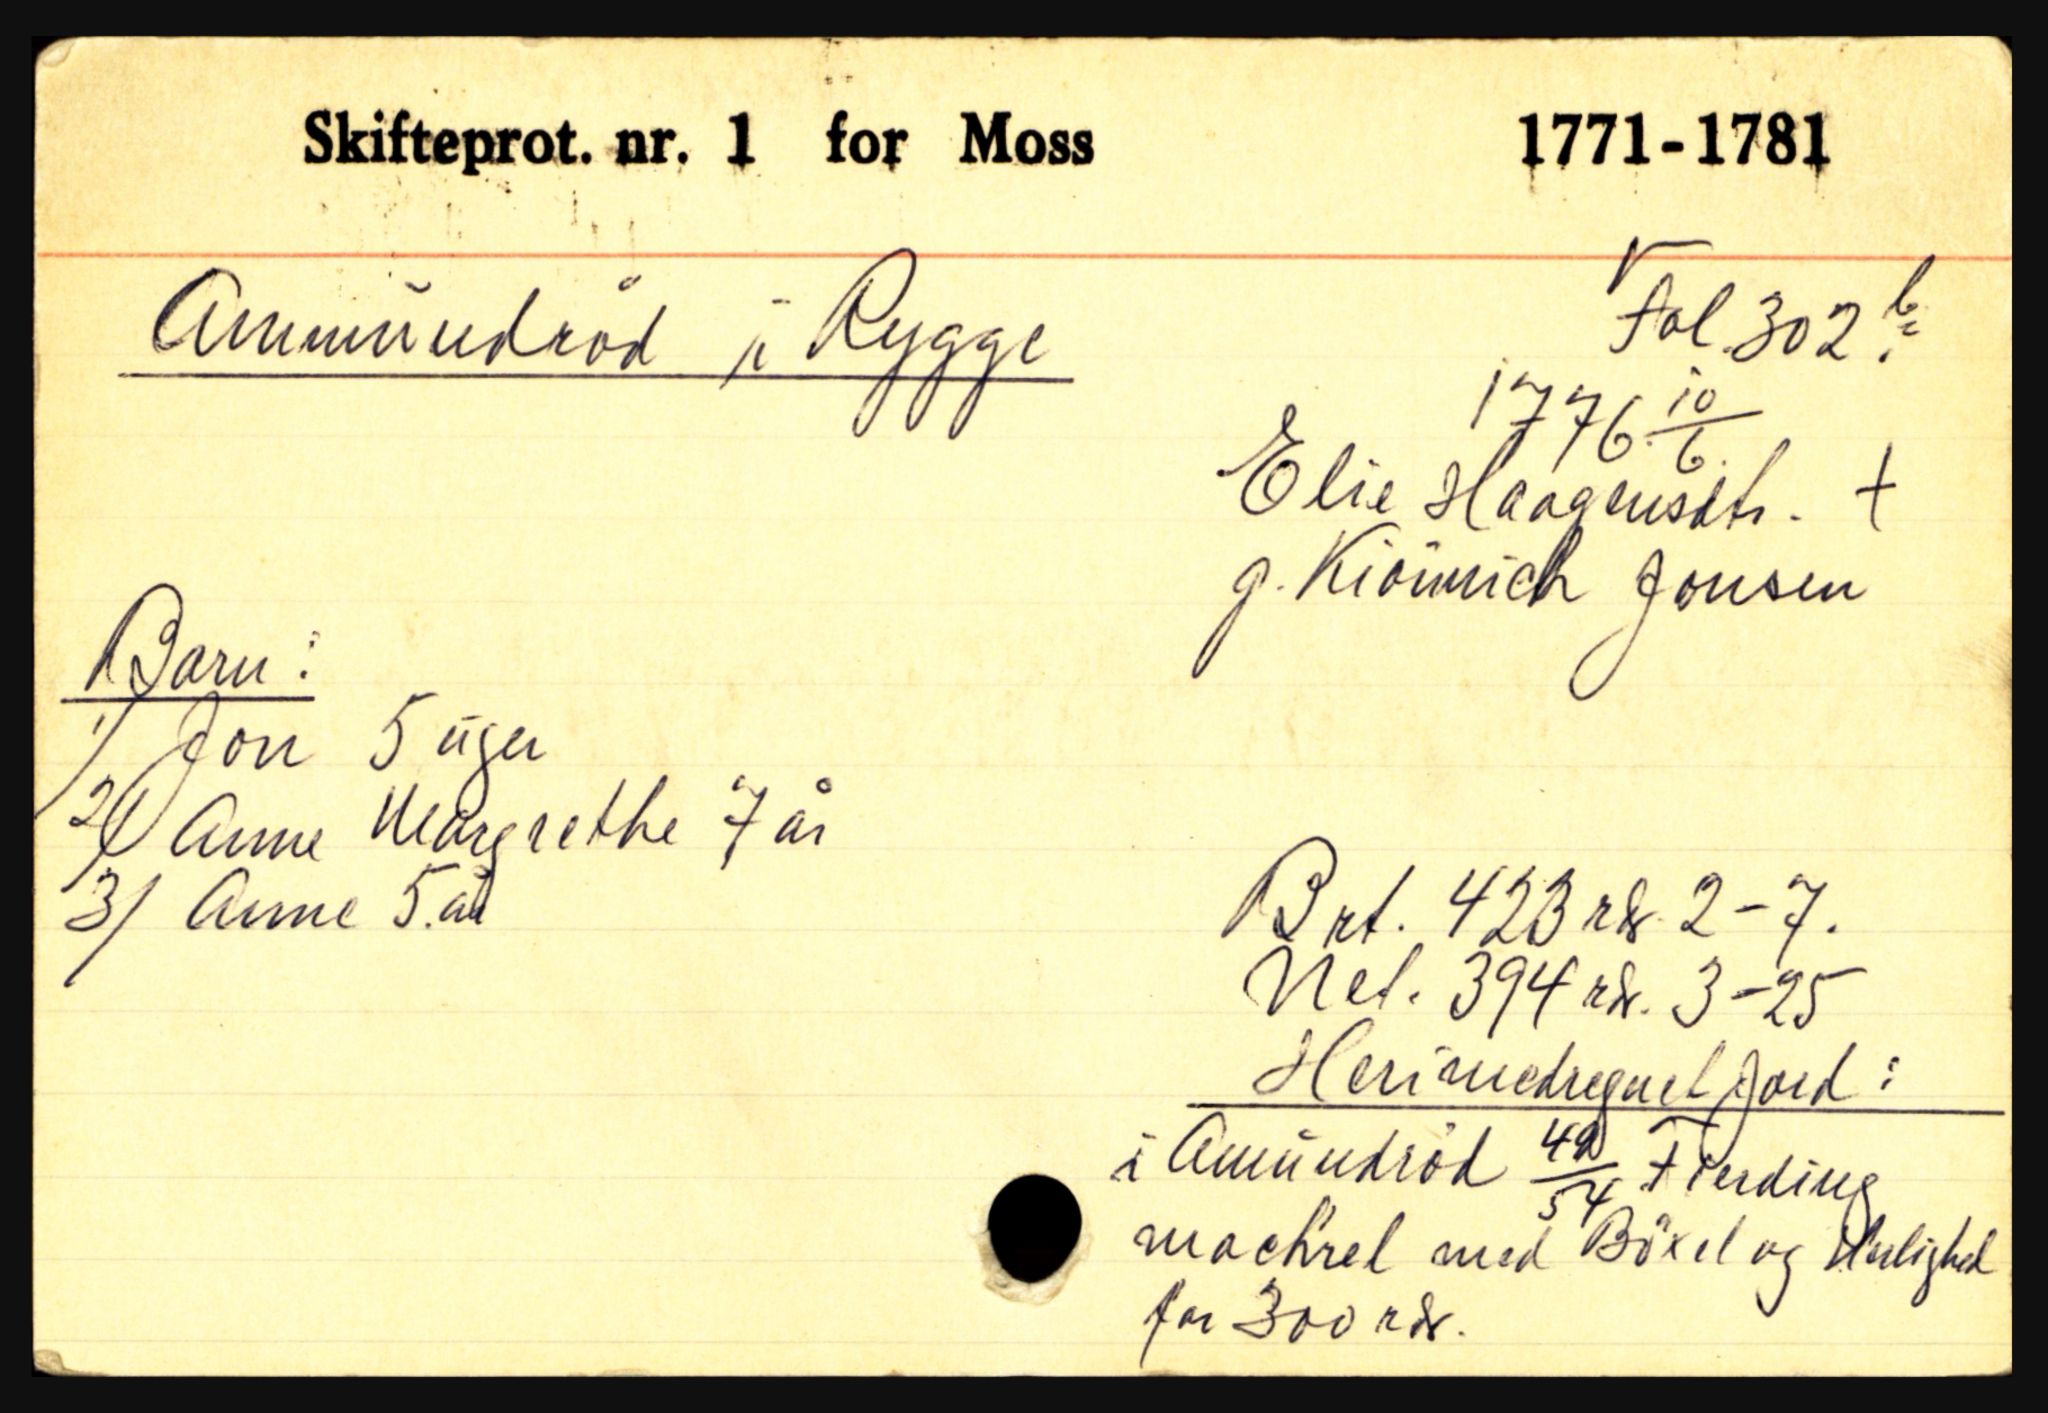 Skifteprot. nr. 1 for Moss 1771-1781
Ammundröd i Rygge
Fol. 302 b
1776 10/6.
Elie Haagensdtr. +
g. Kiönnich Jonsen
Barn:
1/ Jon 5 uger
2/ Anne Margrethe 7 år
3/ Anne 5. år
Brt. 423 rdr. 2-7.
Net. 394 rdr. 3-25
Herimedregnet Jord:
i Amundröd 49/54 Fierding
mackrel med Böxel og Herlighed
for 300 rdr.